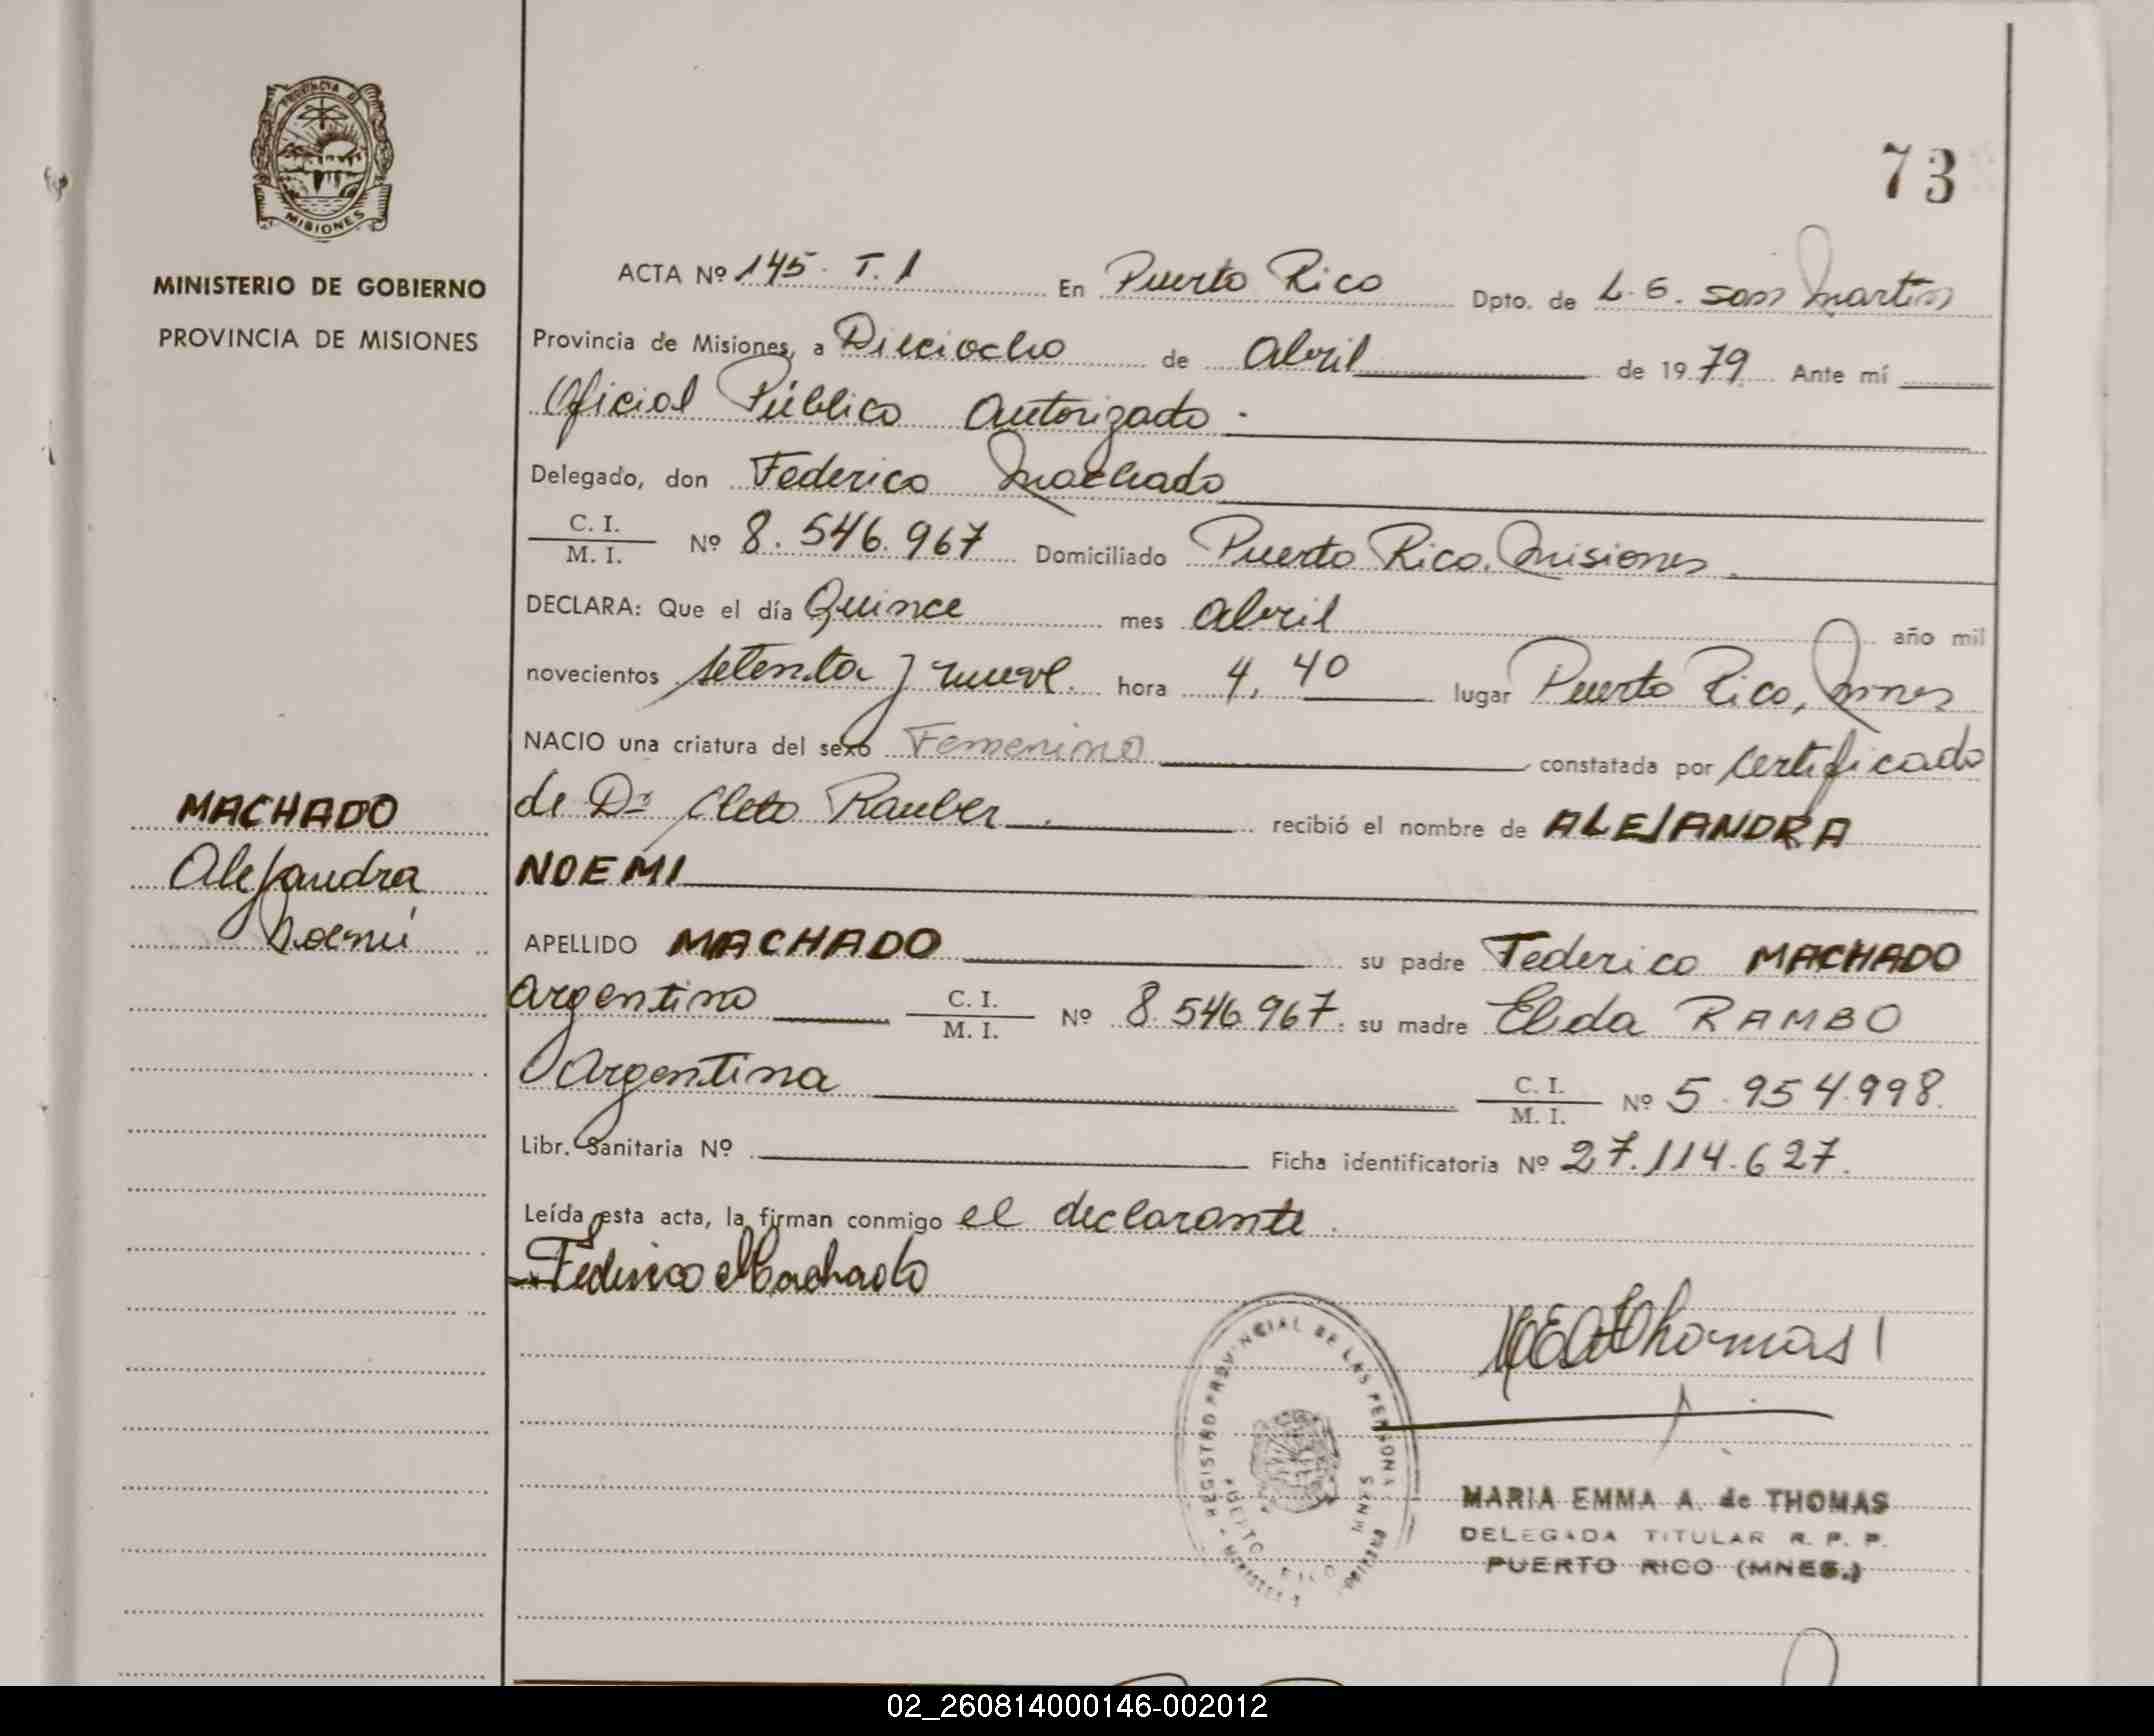 73
PROVINCIA DE
MISIONES
MINISTERIO DE GOBIERNO
PROVINCIA DE MISIONES
ACTA Nº 145. T. 1 En Puerto Rico Dpto. de L. G. San Martin
Provincia de Misiones, a Dieciocho de Abril de 1979 Ante mí
Oficial Público Autorizado.
Delegado, don Federico Machado
C. I.
M. I. Nº 8.546.967 Domiciliado Puerto Rico. Misiones.
DECLARA: Que el día Quince mes Abril año mil
novecientos setenta y nueve. hora 4,40 lugar Puerto Rico, Mnes
NACIO una criatura del sexo Femenino constatada por certificado
de Dr Cleto Rauber. recibió el nombre de ALEJANDRA
NOEMI
APELLIDO MACHADO su padre Federico MACHADO
Argentino C. I.
M. I. Nº 8.546.967. su madre Elida RAMBO
Argentina C. I.
M. I. Nº 5.954.998.
Libr. Sanitaria Nº Ficha identificatoria Nº 27.114.627.
Leída esta acta, la firman conmigo el declarante.
Federico Machado
MACHADO
Alejandra
Noemí
REGISTRO PROVINCIAL DE LAS PERSONAS
PUERTO RICO MNES
MARIA EMMA A. de THOMAS
DELEGADA TITULAR R. P. P.
PUERTO RICO (MNES.)
02_260814000146-002012